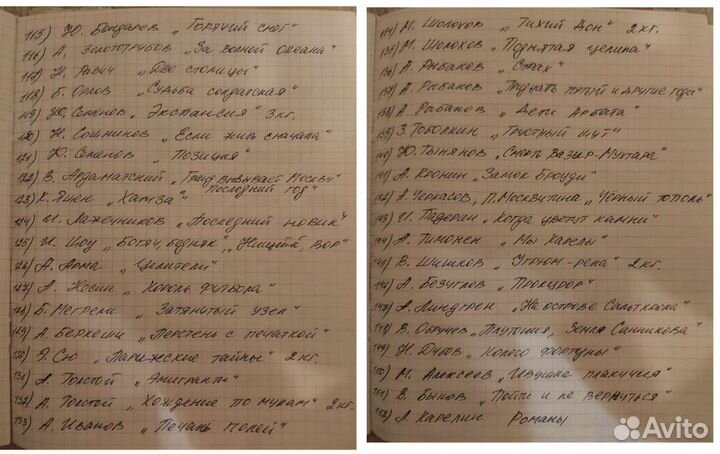 115) Ю. Бондарев „Горячий снег"
116) А. Золототрубов „За волной океана"
117) Н. „Две столицы"
118) Б. Орлов „Судьба солдатская"
119) Ю. Семенов „Экспансия" 3 кг.
120) Н. Сошников „Если жить сначала"
121) Ю. Семенов „Позиция"
122) В. Ардаматский „Грид вызывает Москву"
„Последний год"
123) К. Яшен „Хамза"
124) И. Лажечников „Последний новик"
125) И. Шоу „Богач, бедняк", „Нищий, вор"
126) А. „Целители"
127) А. „Король футбола"
128) Б. Мегрели „Затянутый узел"
129) А. Беркеши „Перстень с печаткой"
130) Э. Сю „Парижские тайны" 2 кг.
131) А. Толстой „Эмигранты"
132) А. Толстой „Хождение по мукам" 2 кг.
133) А. Иванов „Печаль полей"
134) М. Шолохов „Тихий Дон" 2 кг.
135) М. Шолохов „Поднятая целина"
136) А. Рыбаков „Страх"
137) А. Рыбаков „Тридцать пятый и другие годы"
138) А. Рыбаков „Дети Арбата"
139) З. Тоболкин „Грустный шут"
140) Ю. Тынянов „Смерть Вазир-Мухтара"
141) А. Кронин „Замок Броуди"
142) А. Черкасов, П. Москвитина „Чёрный тополь"
143) И. Падерин „Когда цветут камни"
144) А. Тимонен „Мы карелы"
145) В. Шишков „Угрюм-река" 2 кг.
146) А. Безуглов „Прокурор"
147) А. Линдгрен „На острове Сальткрока"
148) В. Обручев „Плутония, Земля Санникова"
149) Н. Дубов „Колесо фортуны"
150) М. Алексеев „Ивушка плакучия"
151) В. Быков „Пойти и не вернуться"
152) Л. Карелин Романы
Avito